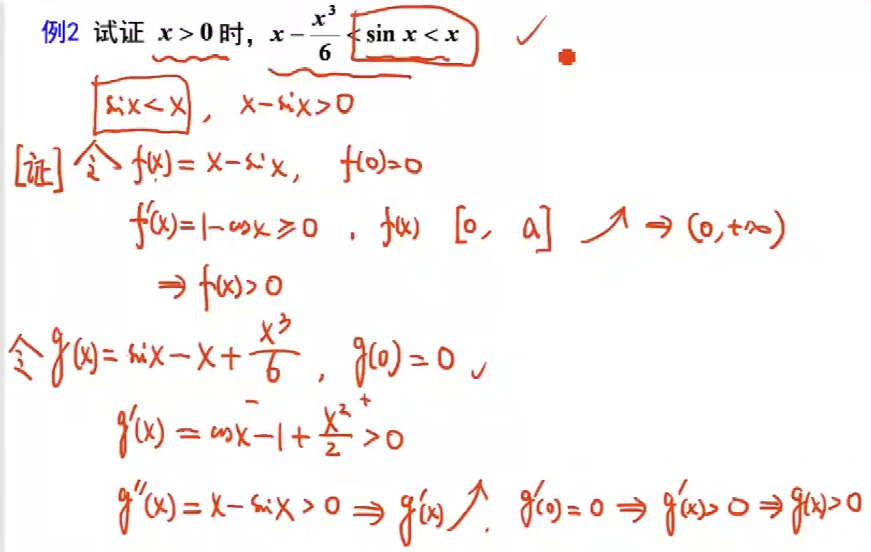 例2 试证 x > 0 时， x − x³/6 < sin x < x ✓
six < x , x − six > 0
[证] 令 f(x) = x − sin x, f(0) = 0
f′(x) = 1 − cos x ⩾ 0 , f(x) [0, a] ↗ ⇒ (0, +∞)
⇒ f(x) > 0
令 g(x) = six − x + x³/6 , g(0) = 0 ✓
g′(x) = cos x − 1 + x²/2 > 0
g″(x) = x − sin x > 0 ⇒ g′(x) ↗. g′(0) = 0 ⇒ g′(x) > 0 ⇒ g(x) > 0